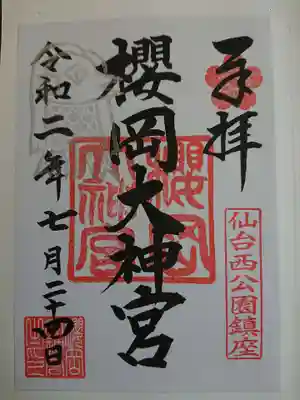 奉拝
仙台西公園鎮座
櫻岡大神宮
令和二年七月二十四日